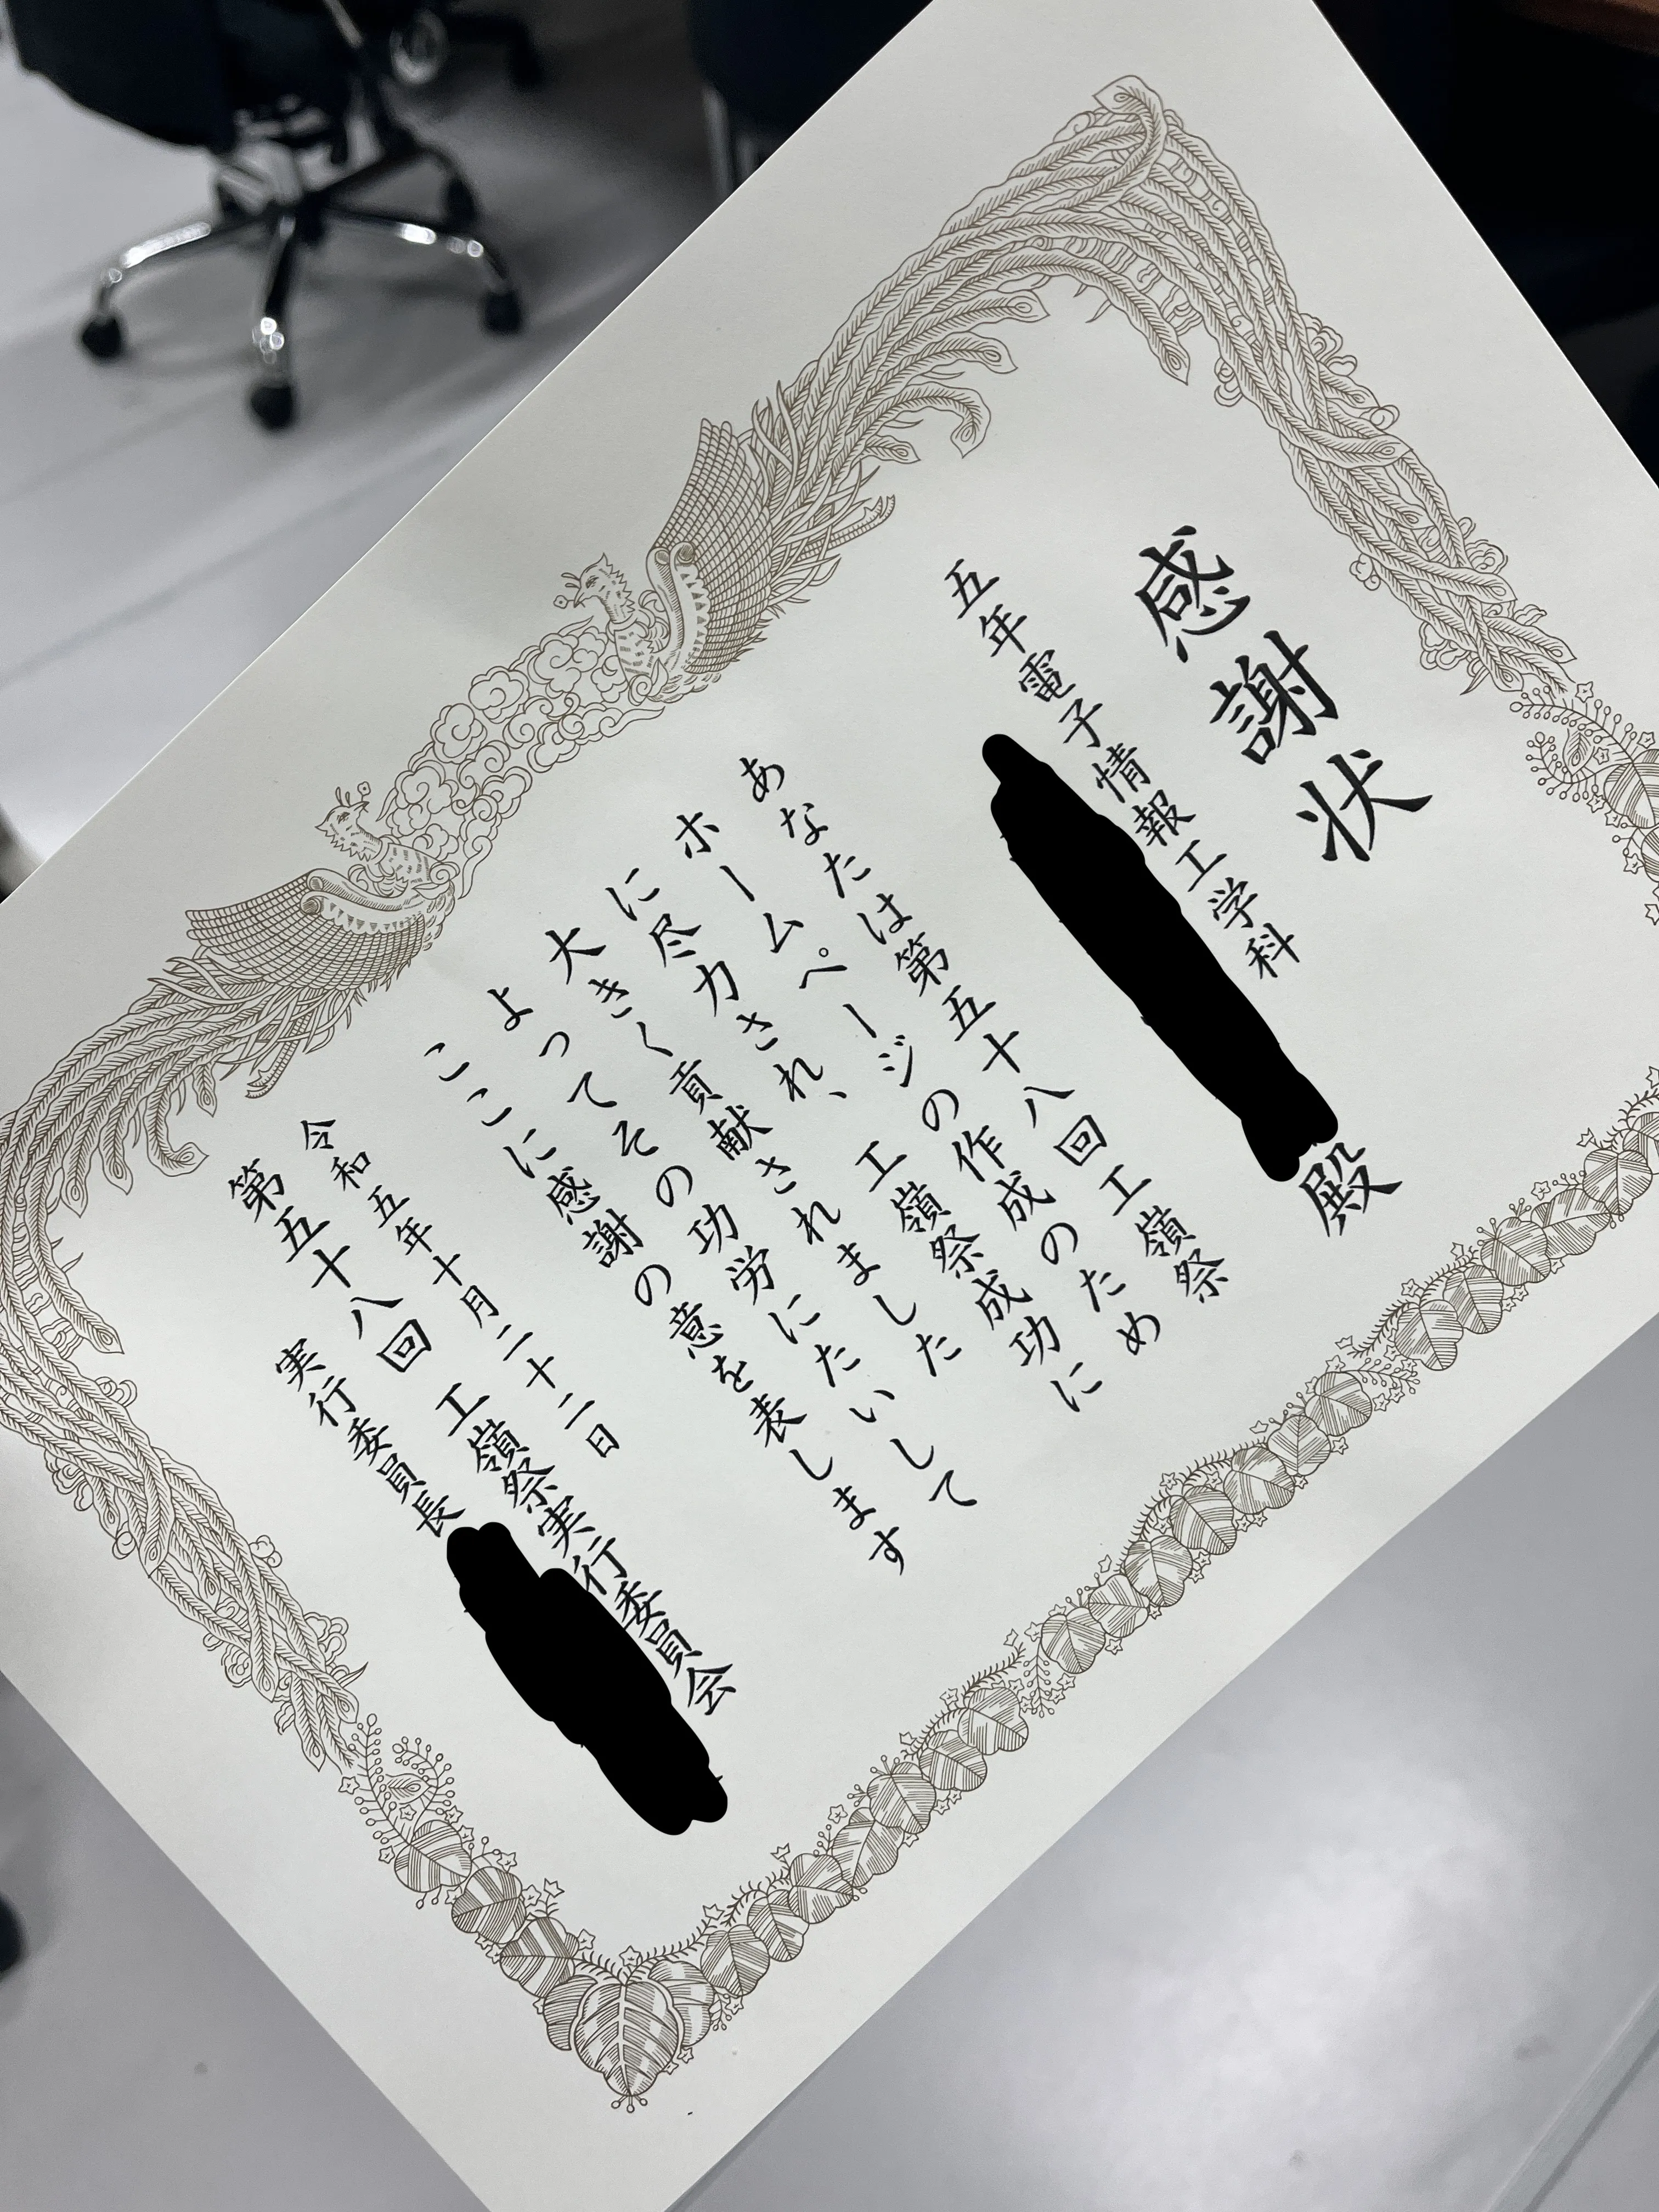 感謝状
五年電子情報工学科
殿
あなたは第五十八回工嶺祭
ホームページの作成のため
に尽力され、工嶺祭成功に
大きく貢献されました
よってその功労にたいして
ここに感謝の意を表します
令和五年十月二十二日
第五十八回 工嶺祭実行委員会
実行委員長